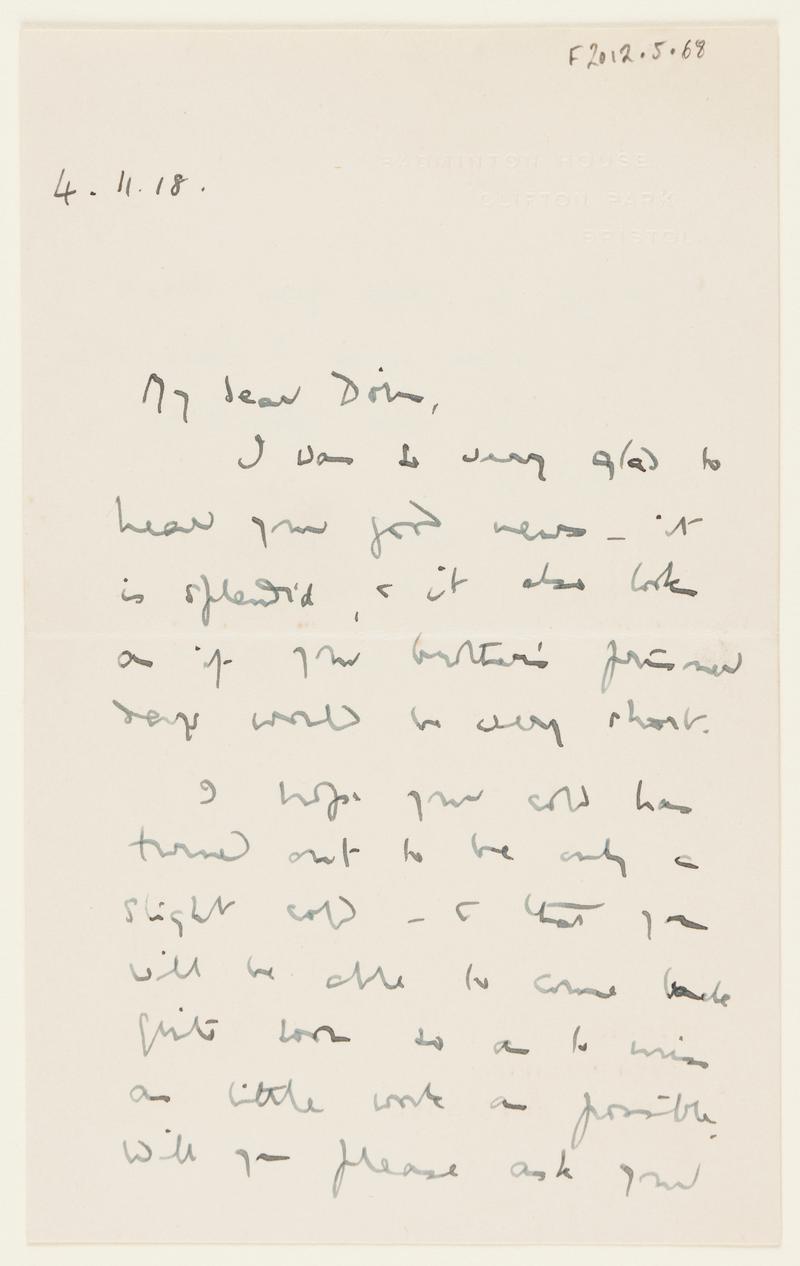 F2012.5.68
BADMINTON HOUSE
CLIFTON PARK
BRISTOL.
4.11.18.
My dear Doris,
I was so very glad to
hear your good news - it
is splendid, & it also looks
as if your brother's prisoner
days would be very short.
I hope your cold has
turned out to be only a
slight cold - & that you
will be able to come back
quite soon so as to miss
as little work as possible.
Will you please ask your